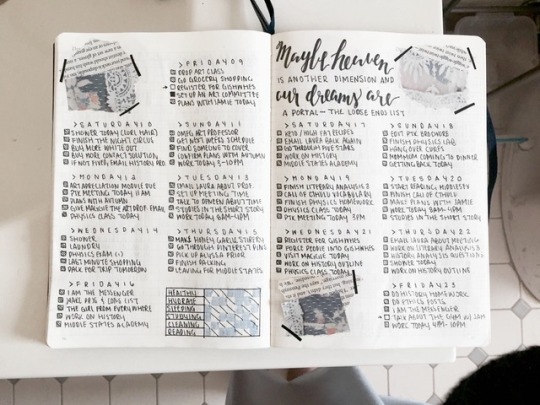 > FRIDAY 09
DROP ART CLASS
GO GROCERY SHOPPING
REGISTER FOR GISHWHES
SET UP AN ART COMMITTEE
PLANS WITH JAMIE TODAY
> SATURDAY 10
SHOWER TODAY (CURL HAIR)
FINISH THE NIGHT CIRCUS
BUY MORE WHITE OUT
BUY MORE CONTACT SOLUTION
IF NOT FIXED, EMAIL HISTORY PRO
> SUNDAY 11
OMFG ART PROFESSOR
GET NEXT WEEKS SCHEDULE
FIND SOMEONE TO COVER
CONFIRM PLANS WITH AUTUMN
WORK TODAY 5-10PM
> MONDAY 12
ART APPRECIATION MODULE DUE
PTK MEETING TODAY 11 AM
PLANS WITH AUTUMN
GIVE MACKIE THE ART PROF. EMAIL
PHYSICS CLASS TODAY
> TUESDAY 13
EMAIL LAURA ABOUT PROJ.
SET UP MEETING TIME
TALK TO DEMERN ABOUT TIME
STUDIES IN THE SHORT STORY
WORK TODAY 8AM-4PM
> WEDNESDAY 14
SHOWER
LAUNDRY
PHYSICS EXAM
LAST MINUTE SHOPPING
PACK FOR TRIP TOMORROW
> THURSDAY 15
MAKE HONEY GARLIC STIRFRY
GO THROUGH PINTEREST PINS
PICK UP ALYSSA PRIOR
FINISH PACKING
LEAVING FOR MIDDLE STATES
> FRIDAY 16
I AM THE MESSENGER
MAKE PROS & CONS LIST
THE GIRL FROM EVERYWHERE
WORK ON HISTORY
MIDDLE STATES ACADEMY
HEALTHY
HYDRATE
SLEEPING
STUDYING
CLEANING
READING
Maybe heaven
IS ANOTHER DIMENSION AND
our dreams are
A PORTAL - THE LOOSE ENDS LIST
> SATURDAY 17
EMAIL LAURA BACK AGAIN
GO THROUGH FIVE STARS
WORK ON HISTORY
MIDDLE STATES ACADEMY
> SUNDAY 18
EDIT PTK BROCHURE
FINISH PHYSICS LAB
HANG OVER CURES
MOMMOM COMING TO DINNER
GETTING BACK TODAY
> MONDAY 19
FINISH LITERARY ANALYSIS 3
CALL OF CTHULHU VOCABULARY
FINISH PHYSICS HOMEWORK
PHYSICS CLASS TODAY
PTK MEETING TODAY 3PM
> TUESDAY 20
START READING MIDDLESEX
FINISH CALL OF CTHULHU
MAKE PLANS WITH JAMIE
WORK TODAY 9AM-4PM
STUDIES IN THE SHORT STORY
> WEDNESDAY 21
REGISTER FOR GISHWHES
FORCE PEOPLE INTO GISHWHES
VISIT MACKIE TODAY
WORK ON HISTORY OUTLINE
PHYSICS CLASS TODAY
> THURSDAY 22
EMAIL LAURA ABOUT MEETING
WORK ON LITERARY ANALYSIS
HISTORY ANALYSIS QUESTIONS
SHOWER TODAY
WORK ON HISTORY OUTLINE
> FRIDAY 23
DO HISTORY HOMEWORK
DO PHYSICS
I AM THE MESSENGER
TALK ABOUT THE GYM W/ SAM
WORK TODAY 4PM-10PM